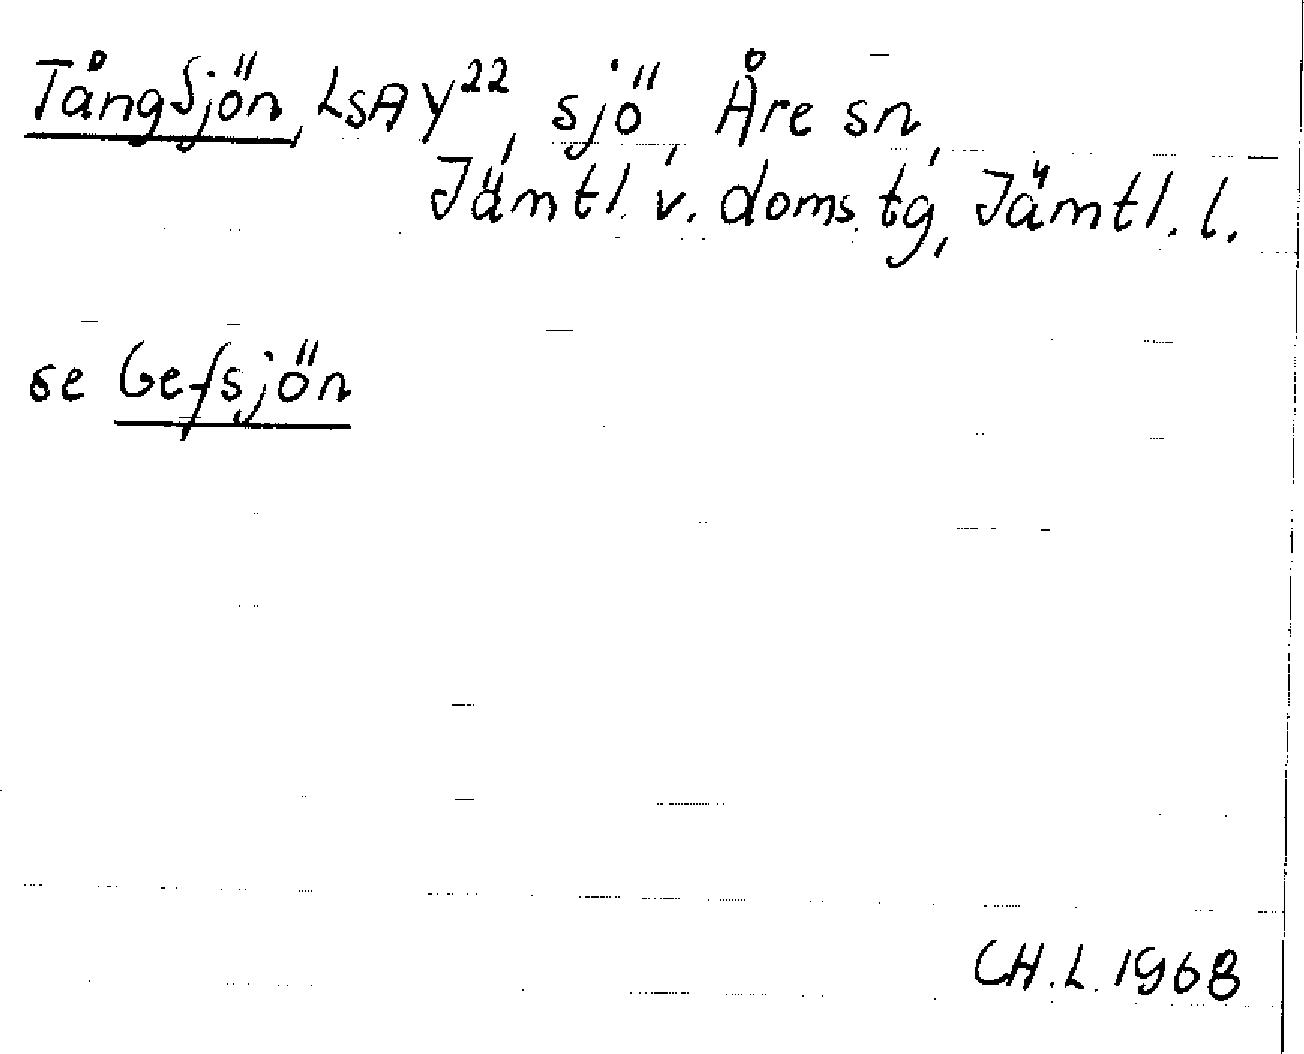 Tångsjön, LSA Y22, sjö, Åre sn,
Jämtl. v. doms. tg, Jämtl. l.
se Gefsjön
CH.L. 1968